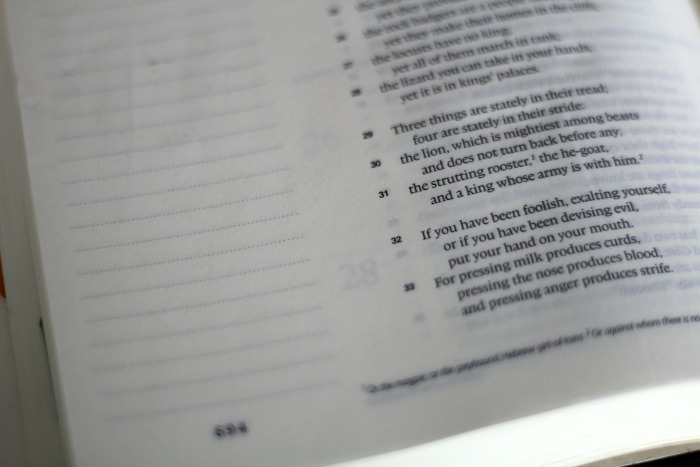 the rock badgers are a people
yet they make their homes in the cliffs;
27 the locusts have no king,
yet all of them march in rank;
28 the lizard you can take in your hands,
yet it is in kings' palaces.
29 Three things are stately in their tread;
four are stately in their stride:
30 the lion, which is mightiest among beasts
and does not turn back before any;
31 the strutting rooster,¹ the he-goat,
and a king whose army is with him.²
32 If you have been foolish, exalting yourself,
or if you have been devising evil,
put your hand on your mouth.
33 For pressing milk produces curds,
pressing the nose produces blood,
and pressing anger produces strife.
¹ Or the magpie, or the greyhound; Hebrew girt-of-loins ² Or against whom there is no
694